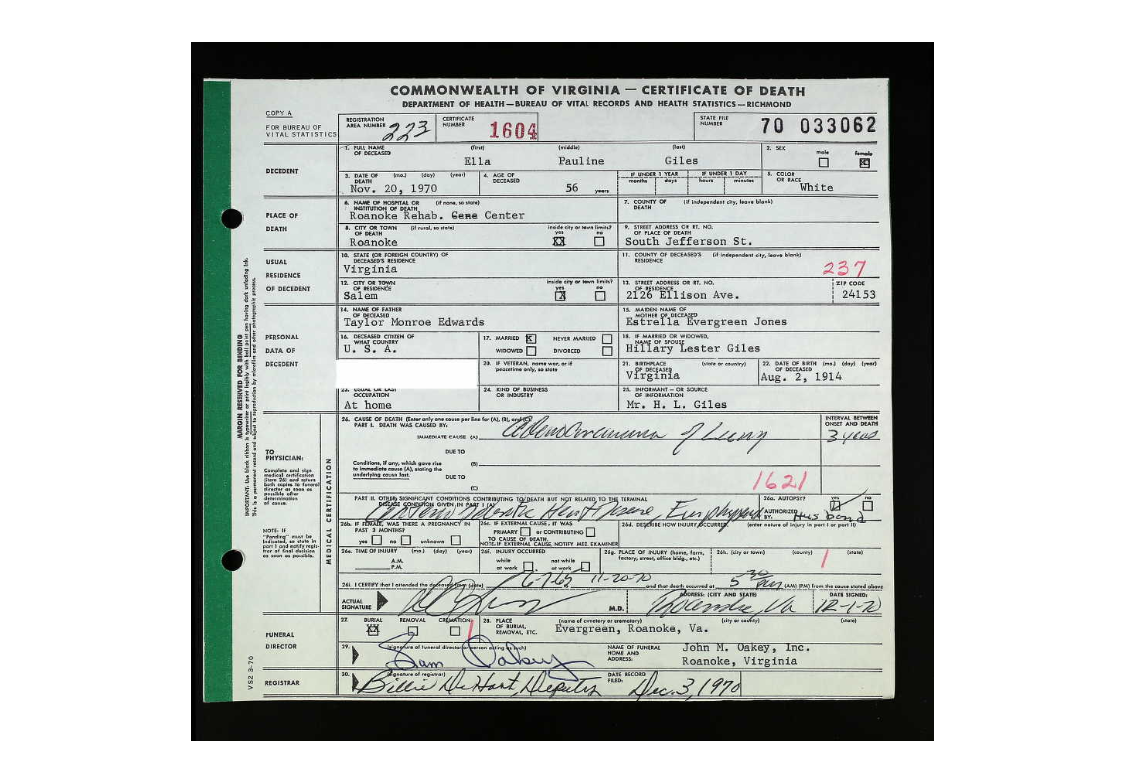 COMMONWEALTH OF VIRGINIA — CERTIFICATE OF DEATH
DEPARTMENT OF HEALTH—BUREAU OF VITAL RECORDS AND HEALTH STATISTICS—RICHMOND
COPY A
FOR BUREAU OF VITAL STATISTICS
REGISTRATION AREA NUMBER 223
CERTIFICATE NUMBER 1604
STATE FILE NUMBER 70 033062
DECEDENT
1. FULL NAME OF DECEASED (first) (middle) (last)
Ella Pauline Giles
2. SEX male female X
3. DATE OF DEATH (mo.) (day) (year)
Nov. 20, 1970
4. AGE OF DECEASED 56 years
IF UNDER 1 YEAR months days
IF UNDER 1 DAY hours minutes
5. COLOR OR RACE White
PLACE OF DEATH
6. NAME OF HOSPITAL OR INSTITUTION OF DEATH (if none, so state)
Roanoke Rehab. Center
7. COUNTY OF DEATH (if independent city, leave blank)
8. CITY OR TOWN OF DEATH (if rural, so state)
Roanoke
inside city or town limits? yes XX no
9. STREET ADDRESS OR RT. NO. OF PLACE OF DEATH
South Jefferson St.
USUAL RESIDENCE OF DECEDENT
10. STATE (OR FOREIGN COUNTRY) OF DECEASED'S RESIDENCE
Virginia
11. COUNTY OF DECEASED'S RESIDENCE (if independent city, leave blank)
237
12. CITY OR TOWN OF RESIDENCE
Salem
inside city or town limits? yes X no
13. STREET ADDRESS OR RT. NO. OF RESIDENCE
2126 Ellison Ave.
ZIP CODE
24153
PERSONAL DATA OF DECEDENT
14. NAME OF FATHER OF DECEASED
Taylor Monroe Edwards
15. MAIDEN NAME OF MOTHER OF DECEASED
Estrella Evergreen Jones
16. DECEASED CITIZEN OF WHAT COUNTRY
U. S. A.
17. MARRIED X NEVER MARRIED
WIDOWED DIVORCED
18. IF MARRIED OR WIDOWED, NAME OF SPOUSE
Hillary Lester Giles
20. IF VETERAN, name war, or if peacetime only, so state
21. BIRTHPLACE OF DECEASED (state or country)
Virginia
22. DATE OF BIRTH (mo.) (day) (year) OF DECEASED
Aug. 2, 1914
23. USUAL OR LAST OCCUPATION
At home
24. KIND OF BUSINESS OR INDUSTRY
25. INFORMANT—OR SOURCE OF INFORMATION
Mr. H. L. Giles
MARGIN RESERVED FOR BINDING
TO PHYSICIAN:
Complete and sign medical certification (item 26) and return both copies to funeral director as soon as possible after determination of cause.
NOTE: IF "Pending" must be indicated, so state in part I and notify registrar of final decision as soon as possible.
MEDICAL CERTIFICATION
26. CAUSE OF DEATH (Enter only one cause per line for (A), (B), and
PART I. DEATH WAS CAUSED BY:
IMMEDIATE CAUSE (A) Adenocarcinoma of Lung
INTERVAL BETWEEN ONSET AND DEATH
3 years
DUE TO
Conditions, if any, which gave rise to immediate cause (A), stating the underlying cause last. (B)
DUE TO
(C)
1621
PART II. OTHER SIGNIFICANT CONDITIONS CONTRIBUTING TO DEATH BUT NOT RELATED TO THE TERMINAL DISEASE CONDITION GIVEN IN PART I (A)
Heart Disease,
26a. AUTOPSY? yes no
AUTHORIZED BY. Husband
26b. IF FEMALE, WAS THERE A PREGNANCY IN PAST 3 MONTHS?
yes no unknown
26c. IF EXTERNAL CAUSE, IT WAS
PRIMARY or CONTRIBUTING
TO CAUSE OF DEATH.
NOTE: IF EXTERNAL CAUSE, NOTIFY MED. EXAMINER
26d. DESCRIBE HOW INJURY OCCURRED (enter nature of injury in part I or part II)
26e. TIME OF INJURY (mo.) (day) (year)
A.M.
P.M.
26f. INJURY OCCURRED
while at work not while at work
26g. PLACE OF INJURY (home, farm, factory, street, office bldg., etc.)
26h. (city or town) (county) (state)
26i. I CERTIFY that I attended the deceased 11-20-70 and that death occurred at 5 (AM) (PM) from the cause stated above
ACTUAL SIGNATURE M.D.
ADDRESS: (CITY AND STATE)
Roanoke, Va
DATE SIGNED:
12-1-70
FUNERAL DIRECTOR
27. BURIAL XX REMOVAL CREMATION
28. PLACE OF BURIAL, REMOVAL, ETC. (name of cemetery or crematory) (city or county) (state)
Evergreen, Roanoke, Va.
29. (signature of funeral director or person acting as such)
Sam Oakey
NAME OF FUNERAL HOME AND ADDRESS:
John M. Oakey, Inc.
Roanoke, Virginia
REGISTRAR
30. (signature of registrar)
Billie DeHart, Deputy
DATE RECORD FILED:
Dec. 3, 1970
VS2 3-70